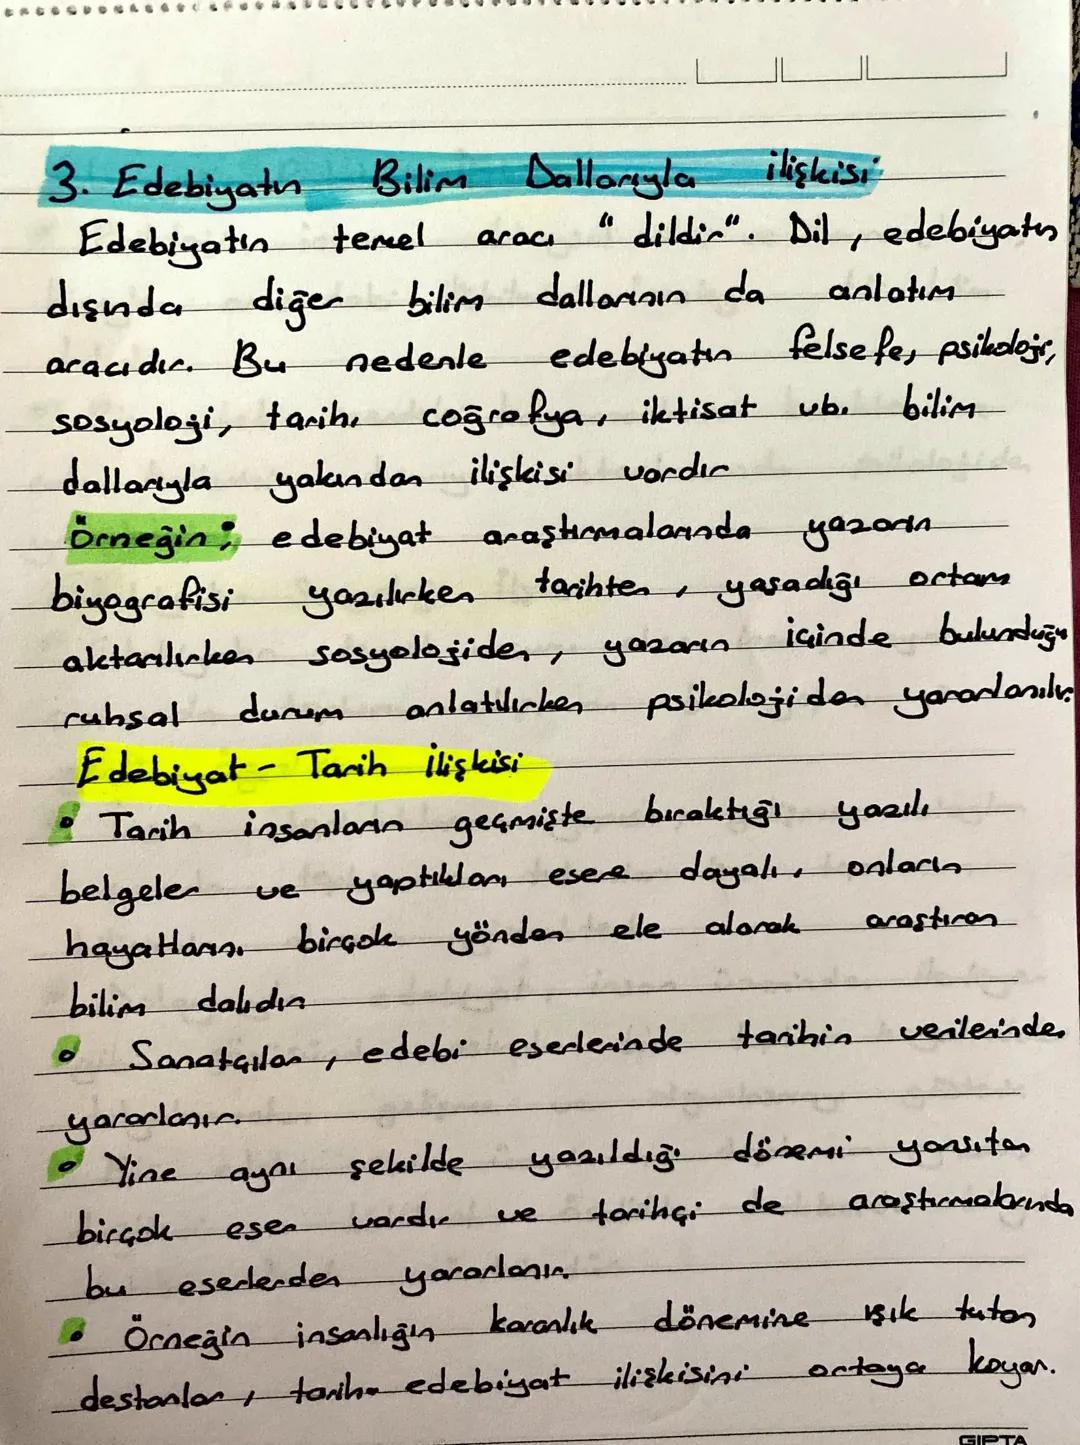 3. Edebiyatın Bilim Dallarıyla ilişkisi
Edebiyatın temel aracı "dildir". Dil, edebiyatın
dışında diğer bilim dallarının da anlatım
aracıdır. Bu nedenle edebiyatın felsefe, psikoloji,
sosyoloji, tarih, coğrafya, iktisat vb. bilim
dallarıyla yakından ilişkisi vardır
Örneğin; edebiyat araştırmalarında yazarın
biyografisi yazılırken tarihten, yaşadığı ortam
aktarılırken sosyolojiden, yazarın içinde bulunduğu
ruhsal durum anlatılırken psikolojiden yararlanılır.
Edebiyat - Tarih İlişkisi
• Tarih insanların geçmişte bıraktığı yazılı
belgeler ve yaptıkları esere dayalı, onların
hayatlarını birçok yönden ele alarak araştıran
bilim dalıdır
• Sanatçılar, edebi eserlerinde tarihin verilerinden
yararlanır.
• Yine aynı şekilde yazıldığı dönemi yansıtan
birçok eser vardır ve tarihçi de araştırmalarında
bu eserlerden yararlanır.
• Örneğin insanlığın karanlık dönemine ışık tutan
destanlar, tarih edebiyat ilişkisini ortaya koyar.
GIPTA